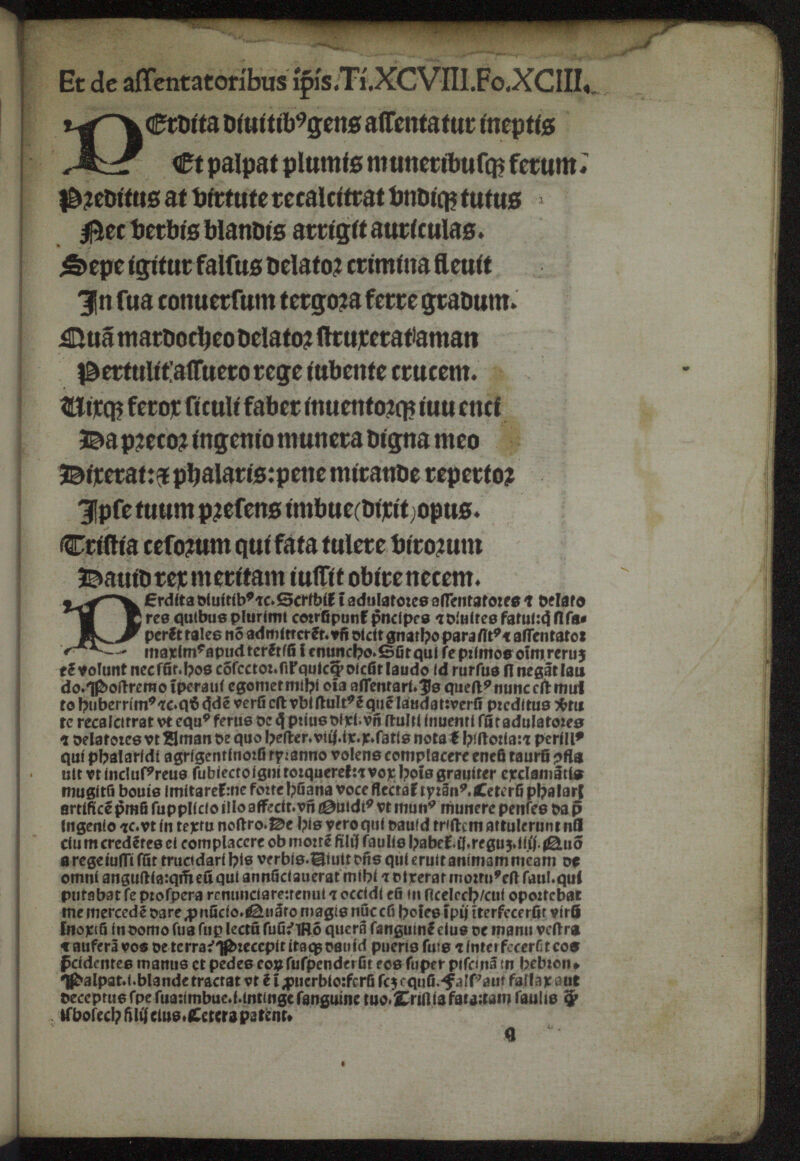 Et de assentatoribus ip̄is.Ti.XCVIII.Fo.XCIII.
PErdita diuitibꝰ gens assentatur ineptis
Et palpat plumis muneribusqꝫ ferum:
Preditus at virtute recalcitrat vndiqꝫ tutus
Nec verbis blandis arrigit auriculas.
Sepe igitur falsus delator crimina fleuit
In sua conuersum tergora ferre gradum.
Quā mardocheo delator struxerat aman
Pertulit assuero rege iubente crucem.
Uixqꝫ ferox siculi faber inuentorqꝫ iuuenci
Da precor ingenio munera digna meo
Dixerat: ⁊ phalaris: pene mirande repertor
Ipse tuum presens imbue(dixit)opus.
Cristia cesorum qui fata tulere virorum
Dauid rex meritam iussit obire necem.
PErdita diuitibꝰ ⁊c. Scribit̄ ī adulatores assentatores ⁊ delato
res quibus plurimi corrūpunt̄ p̄ncipes ⁊ diuites fatui: q̄ si sa
perēt tales nō admitterēt. vn̄ dicit gnatho parasitꝰ ⁊ assentator
maximꝰ apud terētiū ī enuncho. Sūt qui se primos oīm reruꝫ
eē volunt nec sūt. hos cōsector. sil' quicqͥd dicūt laudo id rursus si negāt lau
do. Postremo īperaui egomet mihi oīa assentari. Is questꝰ nunc est mul
to huberrimꝰ ⁊c. qd̄ q̄dē verū est vbi stultꝰ ē quē laudat: verū preditus v̄tu
te recalcitrat vt equꝰ ferus de q̄ prius dixi. vn̄ stulti inuenti sūt adulatores
⁊ delatores vt Aman de quo hester. viij. ix. x. satis nota ē historia: ⁊ perillꝰ
qui phalaridi agrigentinorū tyranno volens complacere eneū taurū ɔfla
uit vt inclusꝰ reus subiecto igni torqueret̄: ⁊ vox hoīs grauiter exclamātis
mugitū bouis imitaret̄: ne forte hūana voce flectat̄ tyrānꝰ. Ceterū phalari
artificē p̄mū supplicio illo affecit. vn̄ Ouidiꝰ vt munꝰ munere penses da p̄
ingenio ⁊c. vt in textu nostro. De his vero qui dauid tristem attulerunt nū
cium credētes ei complacere ob mortē filij saulis habet̄. ij. reguꝫ. iiij. Quō
a rege iussi sūt trucidari his verbis. Uiuit dn̄s qui eruit animam meam de
omni angustia: qm̄ eū qui annūciauerat mihi ⁊ dixerat mortuꝰ est saul. qui
putabat se prospera renunciare: tenui ⁊ occidi eū in sicelech/cui oportebat
me mercedē dare ꝓ nūcio. Quāto magis nūc cū hoīes īpij īterfecerūt virū
Inoxiū in domo sua sup lectū suū? Nō querā sanguinē eius de manu vestra
⁊ auferā vos de terra? Precepit itaqꝫ dauid pueris suis ⁊ interfecerūt eos
p̄cidentes manus et pedes eoꝝ suspenderūt eos super piscinā in hebron.
Palpat. i. blande tractat vt ē ī ꝓuerbio: ferū scꝫ equū. Falsꝰ aut fallax aut
deceptus spe sua: imbue. i. intinge sanguine tuo. Tristia fata: tam saulis q̄
isbosech filij eius. Cetera patent.
q